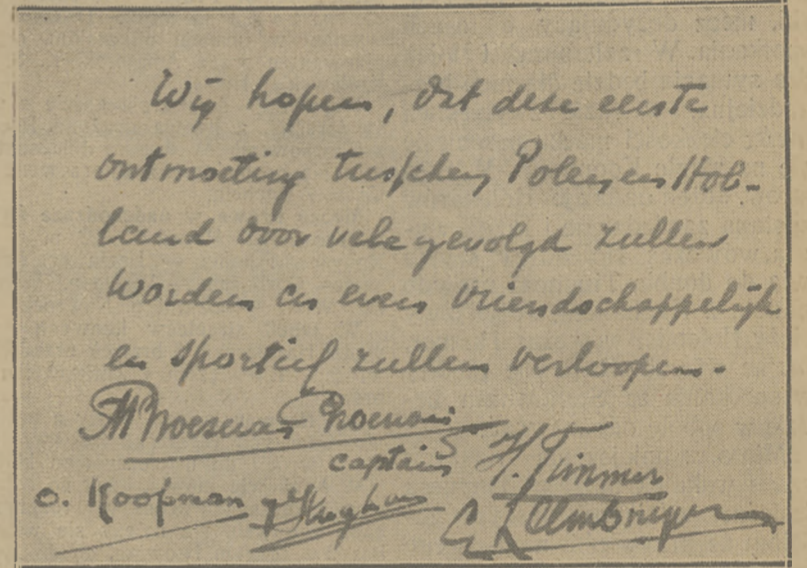 Wij hopen, dat deze eerste
ontmoeting tusschen Polen en Hol-
land door vele gevolgd zullen
worden en even vriendschappelijk
en sportief zullen verloopen.
captain H. Timmer
O. Koopman